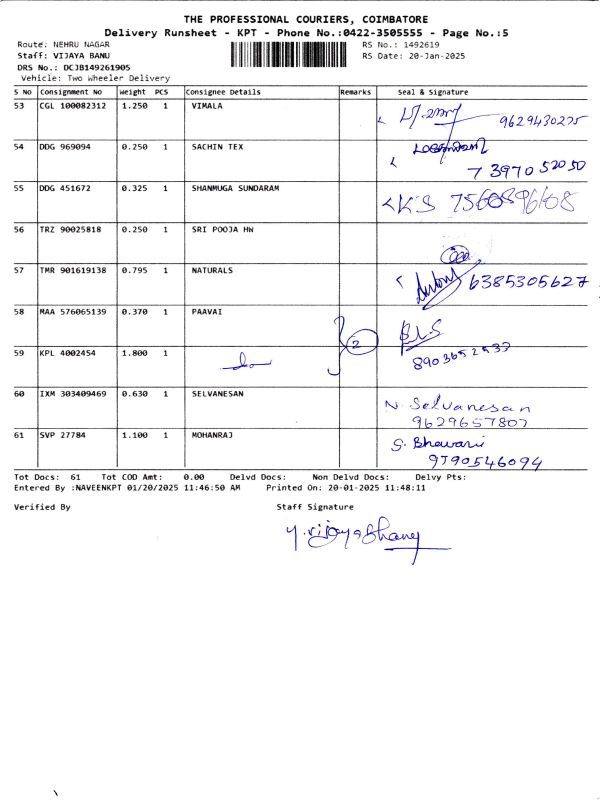 THE PROFESSIONAL COURIERS, COIMBATORE
Delivery Runsheet - KPT - Phone No.:0422-3505555 - Page No.:5
Route: NEHRU NAGAR RS No.: 1492619
Staff: VIJAYA BANU RS Date: 20-Jan-2025
DRS No.: DCJB149261905
Vehicle: Two Wheeler Delivery
S No Consignment No Weight PCS Consignee Details Remarks Seal & Signature
53 CGL 100082312 1.250 1 VIMALA 9629430275
54 DDG 969094 0.250 1 SACHIN TEX 7397052050
55 DDG 451672 0.325 1 SHANMUGA SUNDARAM K'S
56 TRZ 90025818 0.250 1 SRI POOJA HW
57 TMR 901619138 0.795 1 NATURALS 6385305627
58 MAA 576065139 0.370 1 PAAVAI
59 KPL 4002454 1.800 1 2 8903652533
60 IXM 303409469 0.630 1 SELVANESAN N. Selvanesan
9629657807
61 SVP 27784 1.100 1 MOHANRAJ S. Bhavani
9790546094
Tot Docs: 61 Tot COD Amt: 0.00 Delvd Docs: Non Delvd Docs: Delvy Pts:
Entered By :NAVEENKPT 01/20/2025 11:46:50 AM Printed On: 20-01-2025 11:48:11
Verified By Staff Signature
y.vijayabhanu